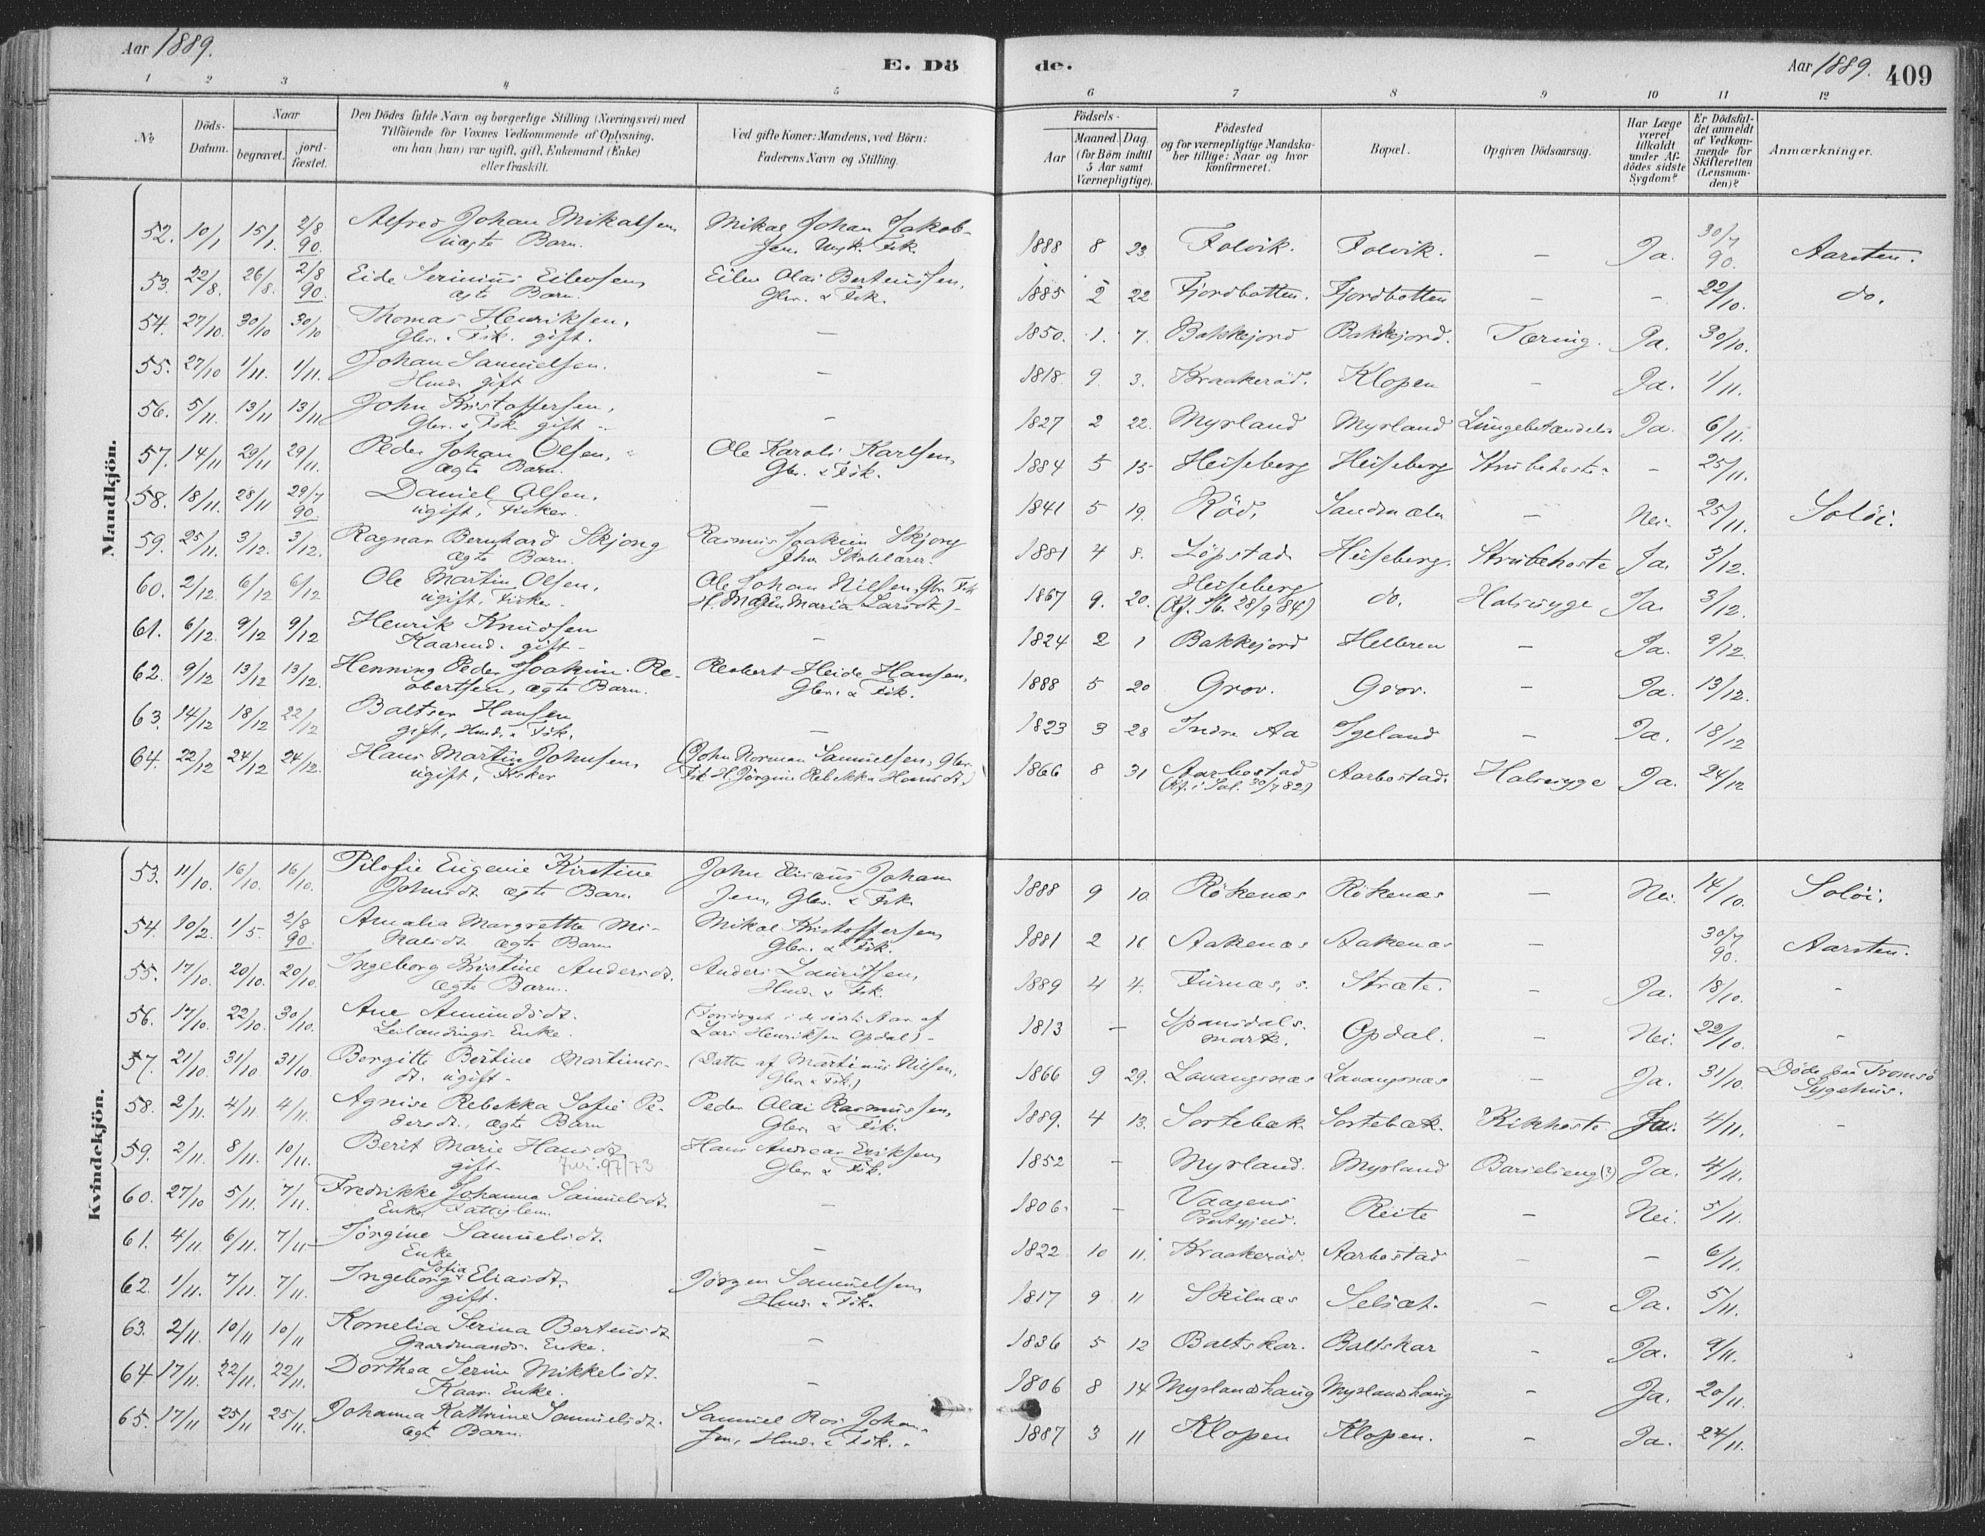 Aar 1889.
E. Dö
de.
Aar 1889.
409
1 2 3 4 5 6 7 8 9 10 11 12
No
Döds-
Datum.
Naar
begravet.
jord-
fæstet.
Den Dödes fulde Navn og borgerlige Stilling (Næringsvei) med
Tilföiende for Voxnes Vedkommende af Oplysning,
om han (hun) var ugift, gift, Enkemand (Enke)
eller fraskilt.
Ved gifte Koner: Mandens, ved Börn:
Faderens Navn og Stilling.
Födsels-
Aar
Maaned.
Dag
(for Börn indtil
5 Aar samt
Værnepligtige).
Födested
og for værnepligtige Mandska-
ber tillige: Naar og hvor
konfirmeret.
Bopæl.
Opgiven Dödsaarsag.
Har Læge
været
tilkaldt
under Af-
dödes sidste
Sygdom?
Er Dödsfal-
det anmeldt
af Vedkom-
mende for
Skifteretten
(Lensman-
den)?
Anmærkninger.
Mandkjön.
52. 10/1 15/1. 2/8 90. Alfred Johan Mikalsen Mikal Johan Jakob- 1888 8 23 Folvik. Folvik. - Ja. 30/7 90. Aarsten.
uægte Barn. sen Fsk.
53. 22/8. 26/8. 2/8 90. Eide Serinius Eilevsen Eilev Olai Berteussen, 1885 2 22 Fjordbotten. Fjordbotten - - 22/10. do.
ægte Barn. Gbr. & Fsk.
54. 27/10. 30/10 30/10 Thomas Henriksen, - 1850. 1. 7. Bakkejord Bakkejord. Tæring. Ja. 30/10.
Gbr. & Fsk. gift.
55. 27/10 1/11. 1/11. Johan Samuelsen. - 1818 9 3. Kraakeröd. Klopen - Ja. 1/11.
Husm. gift
56. 5/11. 13/11 13/11 John Kristoffersen, - 1827 2 22. Myrland Myrland Lungebetændelse Ja. 6/11.
Gbr. & Fsk. gift -
57. 14/11 29/11 29/11. Peder Johan Olsen, Ole Karoli Karlsen, 1884 5 15 Heiseberg Heiseberg Strubehoste - 25/11.
ægte Barn. Gbr. & Fsk.
58. 18/11. 28/11 29/7 90. Daniel Olsen. - 1841 5 19. Röd. - Nei. 25/11. Solöi.
ugift, Fisker.
59. 25/11. 3/12. 3/12. Ragnar Bernhard Skjong Rasmus Joakim Skjong 1881 4 8. Löpstad Heiseberg. Strubehoste Ja. 3/12.
ægte Barn. Skolelærer.
60. 2/12. 6/12 6/12 Ole Martin Olsen. Ole Johan Nilsen, Gbr. Fsk 1867 9. 20. Heiseberg do. Halssyge Ja. 3/12.
ugift, Fisker. H. Maria Larsdt) (Kf. Ib. 28/9 84)
61. 6/12 9/12 9/12 Henrik Knudsen - 1824 2 1 Bakkejord Helleren - Ja. 9/12
Kaarmd. gift -
62. 9/12 13/12 13/12. Henning Peder Joakim Ro- Robert Heide Hansen, 1888 5 20 Grov. Grov. - Ja. 13/12.
bertsen, ægte Barn. Gbr. & Fsk.
63. 14/12 18/12 22/12 Baltser Hansen - 1823 3 28 Indre Aa Igeland - Ja. 18/12
gift, Husm. & Fsk.
64. 22/12 24/12 24/12. Hans Martin Johnsen, (John Norman Samuelsen, Gbr. 1866 8 31 Aarbostad Aarbostad. Halssyge Ja. 24/12
ugift, Fisker Fsk H. Jörgine Rebekka Hansdt.) (Kf. i Sal. 30/7 82)
Kvindekjön.
53. 11/10. 16/10. 16/10. Pilofie Eugenie Kirstine John Elisæus Johan 1888 9 10. Rökenæs Rökenæs - Nei. 14/10. Solöi.
Johnsdt. ægte Barn. sen, Gbr. & Fsk
54. 10/2. 1/5. 2/8 90. Amalia Margrethe Mi- Mikal Kristoffersen, 1881 2 16 Aakenæs Aakenæs - 30/7 90. Aarsten.
kalsdt. ægte Barn Gbr. & Fsk.
55. 17/10. 20/10. 20/10. Ingeborg Kristine Andersdt. Anders Lauritsen, 1889 4 4. Furnæs, s. Stræte. Ja. 18/10. -
ægte Barn. Husm. & Fsk.
56. 17/10. 22/10. 30/10 Ane Amundsdt. (Forsörget i de sidste Aar af 1813 - Spansdals- Opdal. - Nei. 22/10. -
Leilændings Enke. Lars Henriksen Opdal) - mark.
57. 21/10. 31/10. 31/10. Bergitte Bertine Martinus- (Datter af Martinus Nilsen, 1866 9 29. Lavangsnæs Lavangsnæs - Ja. 31/10. Döde paa Tromsö
dt. ugift - Gbr. & Fsk.) Sygehus.
58. 2/11. 4/11. 4/11. Agnise Rebekka Sofie Pe- Peder Olai Rasmussen, 1889. 4 13. Sortebæk Sortebæk. Kikhoste Ja. 4/11. -
dersdt., ægte Barn Gbr. & Fsk.
59. 2/11. 8/11. 10/11. Berit Marie Hansdt. Hans Andreas Eriksen, 1852 - Myrland. Myrland Barselseng (?) Ja. 4/11.
gift. 97/73 Gbr. & Fsk.
60. 27/10 5/11. 7/11. Fredrikke Johanna Samuelsdt. - 1806. - Vaagens Reite - Nei. 5/11.
Enke. Fattiglem. Prestegjeld.
61. 4/11. 6/11. 7/11 Jörgine Samuelsdt. - 1822 10 11. Kraakeröd. Aarbostad - - 6/11.
Enke
62. 1/11. 7/11. 7/11. Ingeborg Sofia Eliasdt. Jörgen Samuelsen, 1817 9 11 Skilnæs Selsæt. - Ja. 5/11.
gift. Husm. & Fsk.
63. 2/11. 10/11 10/11 Kornelia Serina Berteusdt. - 1836 5 12 Baltskar. Baltskar - Ja. 9/11.
Gaardmands. Enke.
64 17/11. 22/11. 22/11. Dorthea Serine Mikkelsdt. - 1806 8 14 Myrlandshaug Myrlandshaug - Ja. 20/11.
Kaar. Enke.
65. 17/11. 25/11 25/11. Johanna Kathrine Samuelsdt. Samuel Johan- 1887 3 11 Klopen Klopen. - Ja. 24/11.
ægte Barn. sen, Husm. & Fsk.